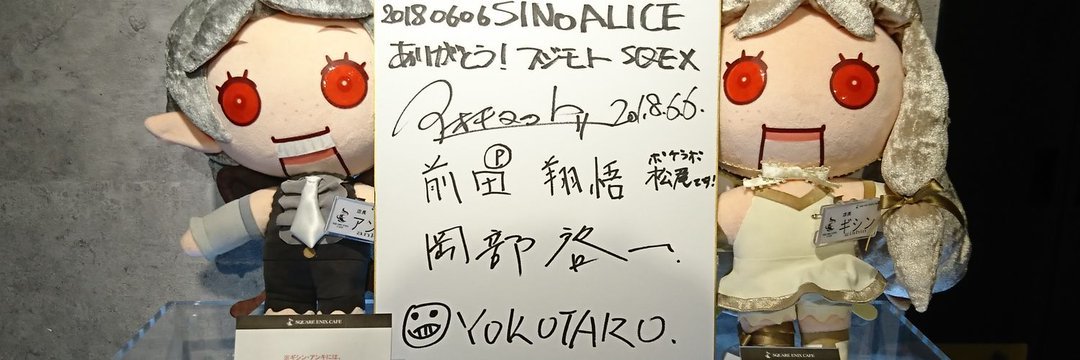 20180606 SINoALICE
ありがとう! フジモト SQEX
2018.6.6.
前田 Ⓟ 翔悟 ポケラボ 松尾です!
岡部 啓一.
YOKOTARO.
店員
アン
店員
ギシン
SQUARE ENIX CAFE
※ギシン・アンキには、
SQUARE ENIX CAFE